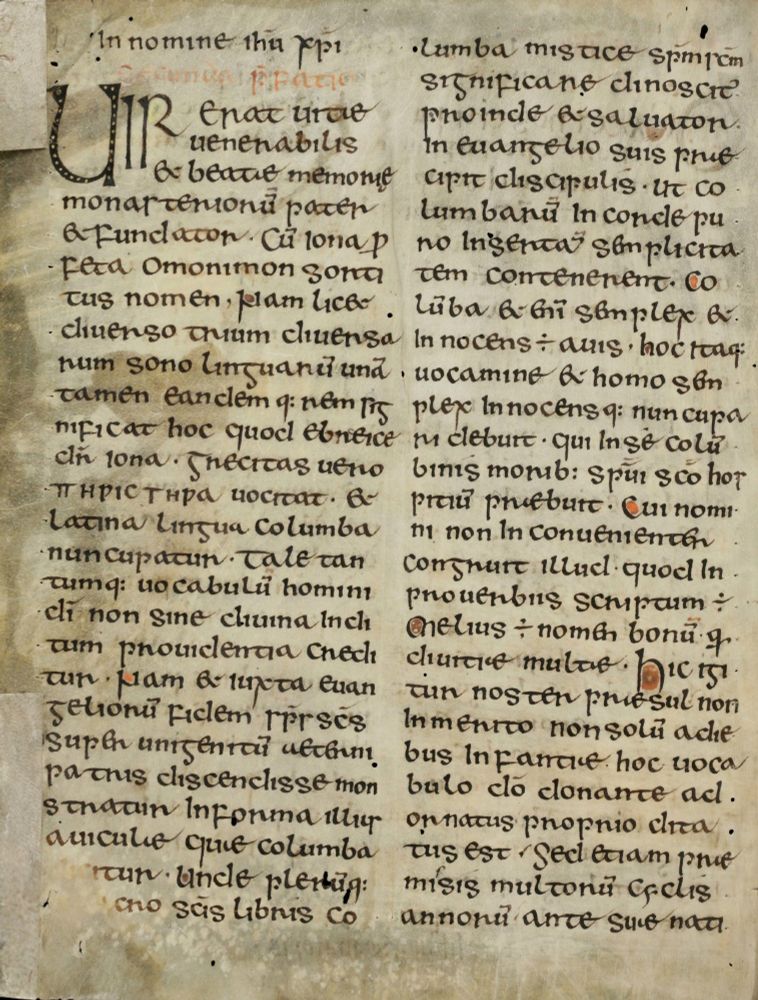 In nomine ihū xp̄i
Secunda p̄fatio
UIR erat uitæ
uenerabilis
& beatæ memoriæ
monasteriorū pater
& fundator · Cū iona ꝓ
feta omonimon sorti
tus nomen · Nam lic&
diuerso trium diuersa
rum sono linguarū unā
tamen eandemq: rem sig
nificat hoc quod ebreice
dr̄ iona · grecitas uero
ΠΗΡΙCΤΗΡΑ uocitat · &
latina lingua columba
nuncupatur · Tale tan
tumq: uocabulū homini
dī non sine diuina indi
tum prouidentia credi
tur · Nam & iuxta euan
geliorū fidem sp̄s sc̄s
super unigenitū aeterni
patris discendisse mon
stratur in forma illius
auiculæ quæ columba
itur · Unde plerūq:
cro sc̄is libris co
lumba mistice sp̄m sc̄m
significare dinoscit̄
proinde & saluator
in euangelio suis præ
cipit discipulis · ut co
lumbarū in corde pu
ro insertā semplicita
tem contenerent · Co
lūba & enī semplex &
innocens ÷ auis · hoc itaq:
uocamine & homo sem
plex innocensq: nuncupa
ri debuit · qui in sē colū
binis morib: sp̄ui sc̄o hos
pitiū præbuit · Cui nomi
ni non inconuenienter
congruit illud · quod in
prouerbiis scriptum ÷
Melius ÷ nomen bonū · q̄
diuitiæ multæ · hic igi
tur noster præsul non
inmerito non solū a diæ
bus infantiæ hoc uoca
bulo dō donante ad
ornatus proprio dita
tus est · Sed etiam præ
misis multorū cyclis
annorū ante suæ nati